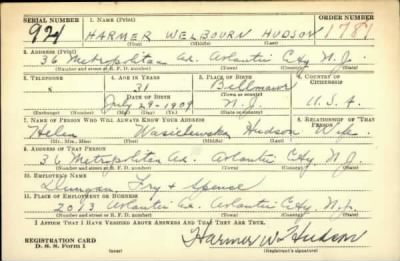 SERIAL NUMBER 1. NAME (Print) ORDER NUMBER
924 HARMER WELBOURN HUDSON 1787
(First) (Middle) (Last)
2. ADDRESS (Print)
36 Metropolitan Av. Atlantic City N.J.
(Number and street or R. F. D. number) (Town) (County) (State)
3. TELEPHONE 4. AGE IN YEARS 5. PLACE OF BIRTH 6. COUNTRY OF CITIZENSHIP
x 31 Bellmawr
DATE OF BIRTH (Town or county)
July 29-1909 N.J. U.S.A
(Exchange) (Number) (Mo.) (Day) (Yr.) (State or country)
7. NAME OF PERSON WHO WILL ALWAYS KNOW YOUR ADDRESS 8. RELATIONSHIP OF THAT PERSON
Helen Hudson Wife
(Mr., Mrs., Miss) (First) (Middle) (Last)
9. ADDRESS OF THAT PERSON
36 Metropolitan Av. Atlantic City N.J.
(Number and street or R. F. D. number) (Town) (County) (State)
10. EMPLOYER'S NAME
Dungan, Fry + Spence
11. PLACE OF EMPLOYMENT OR BUSINESS
2013 Atlantic Av. Atlantic City N.J.
(Number and street or R. F. D. number) (Town) (County) (State)
I AFFIRM THAT I HAVE VERIFIED ABOVE ANSWERS AND THAT THEY ARE TRUE.
Harmer W. Hudson
REGISTRATION CARD
D. S. S. Form 1 (over) (Registrant's signature)